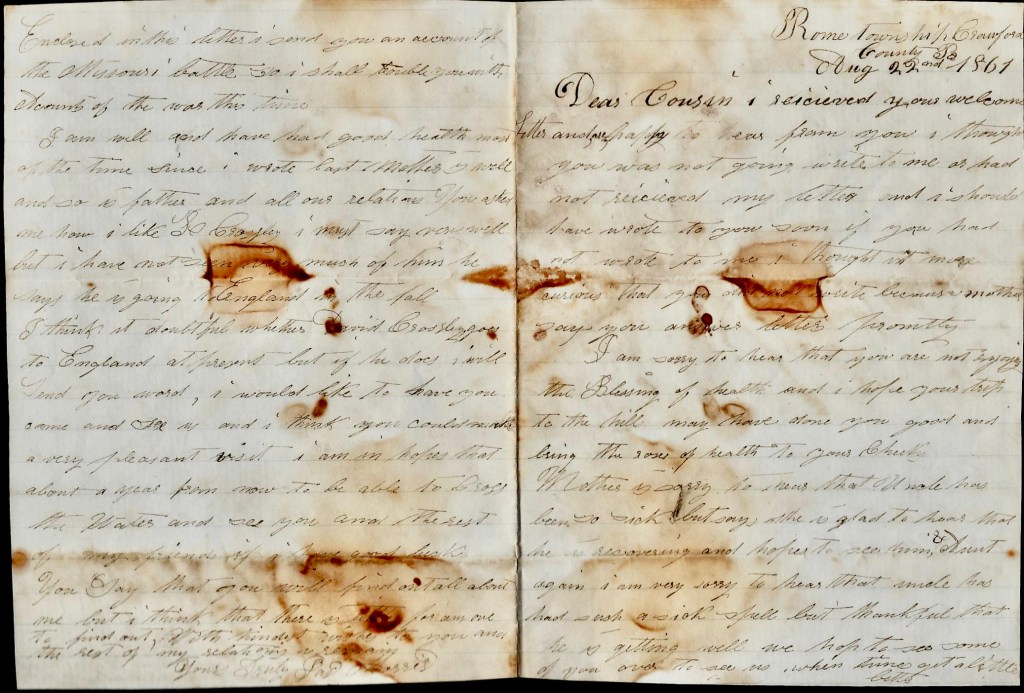 Rome Township Crawford
County Pa
Aug 22nd 1861
Dear Cousin i reicieved your welcome
letter and am happy to hear from you i thought
you was not going write to me or had
not reicieved my letter and i should
have wrote to you soon if you had
not wrote to me i thought it more
curious that you did not write because mother
say you answer letter promtly
I am sorry to hear that you are not enjoying
the Blessing of health and i hope your trip
to the hill may have done you good and
bring the rose of health to your Cheek
Mother is sorry to hear that Uncle has
been so sick but says she is glad to hear that
he is recovering and hopes to see him & Aunt
again i am very sorry to hear that uncle has
had such a sick spell but thankful that
he is getting well we hop to see some
of you over to see us when time get a little
better
Enclosed in this letter i send you an account of
the Missouri battle so i shall trouble you with
Acounts of the war this time
I am well and have had good health most
of the time since i wrote last Mother is well
and so is father and all our relations You asked
me how i like Crossley i must say very well
but i have not seen much of him he
says he is going to England in the fall
I think it doubtful whether David Crossley goes
to England at present but if he does i will
Send you word, i would like to have you
come and See us and i think you could make
a very pleasant visit i am in hopes that
about a year from now to be able to Cross
the Water and see you and the rest
of my friends if i have good luck
You Say that you will find out all about
me but i think that there is for anyone
to find out, With kindest to you and
the rest of my relations
Yours Truly